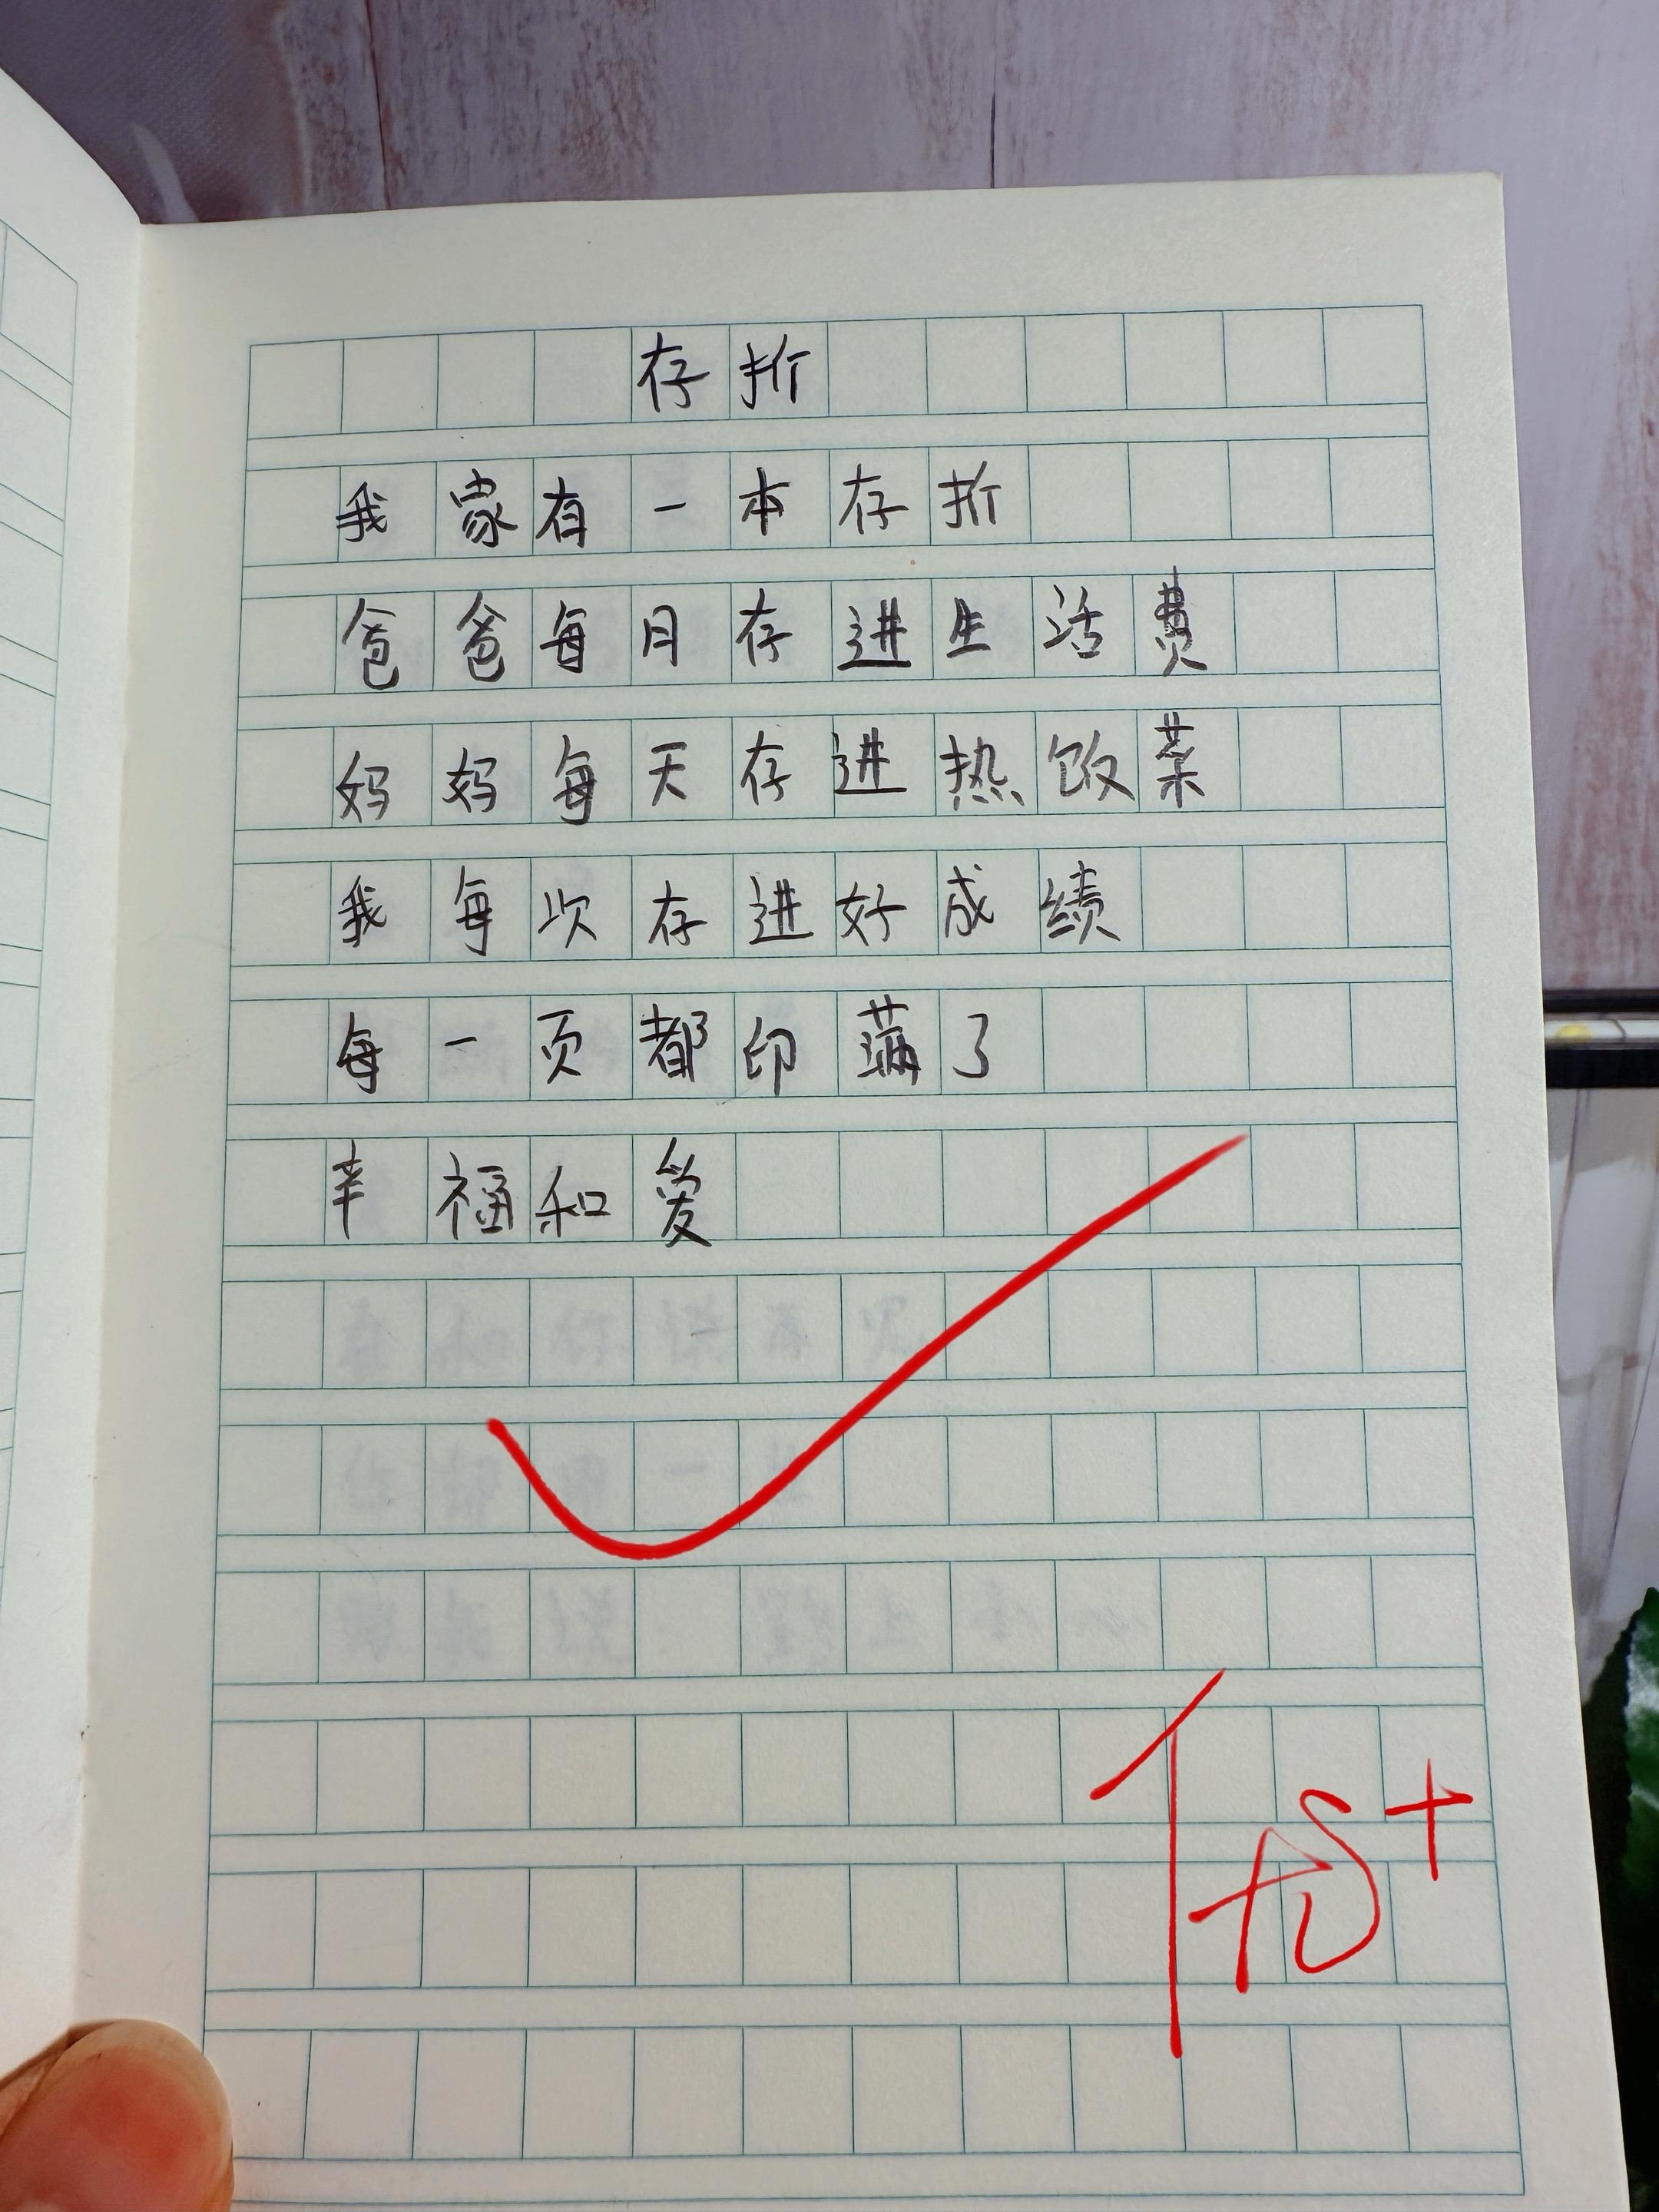 存折
我家有一本存折
爸爸每月存进生活费
妈妈每天存进热饭菜
我每次存进好成绩
每一页都印满了
幸福和爱
优+